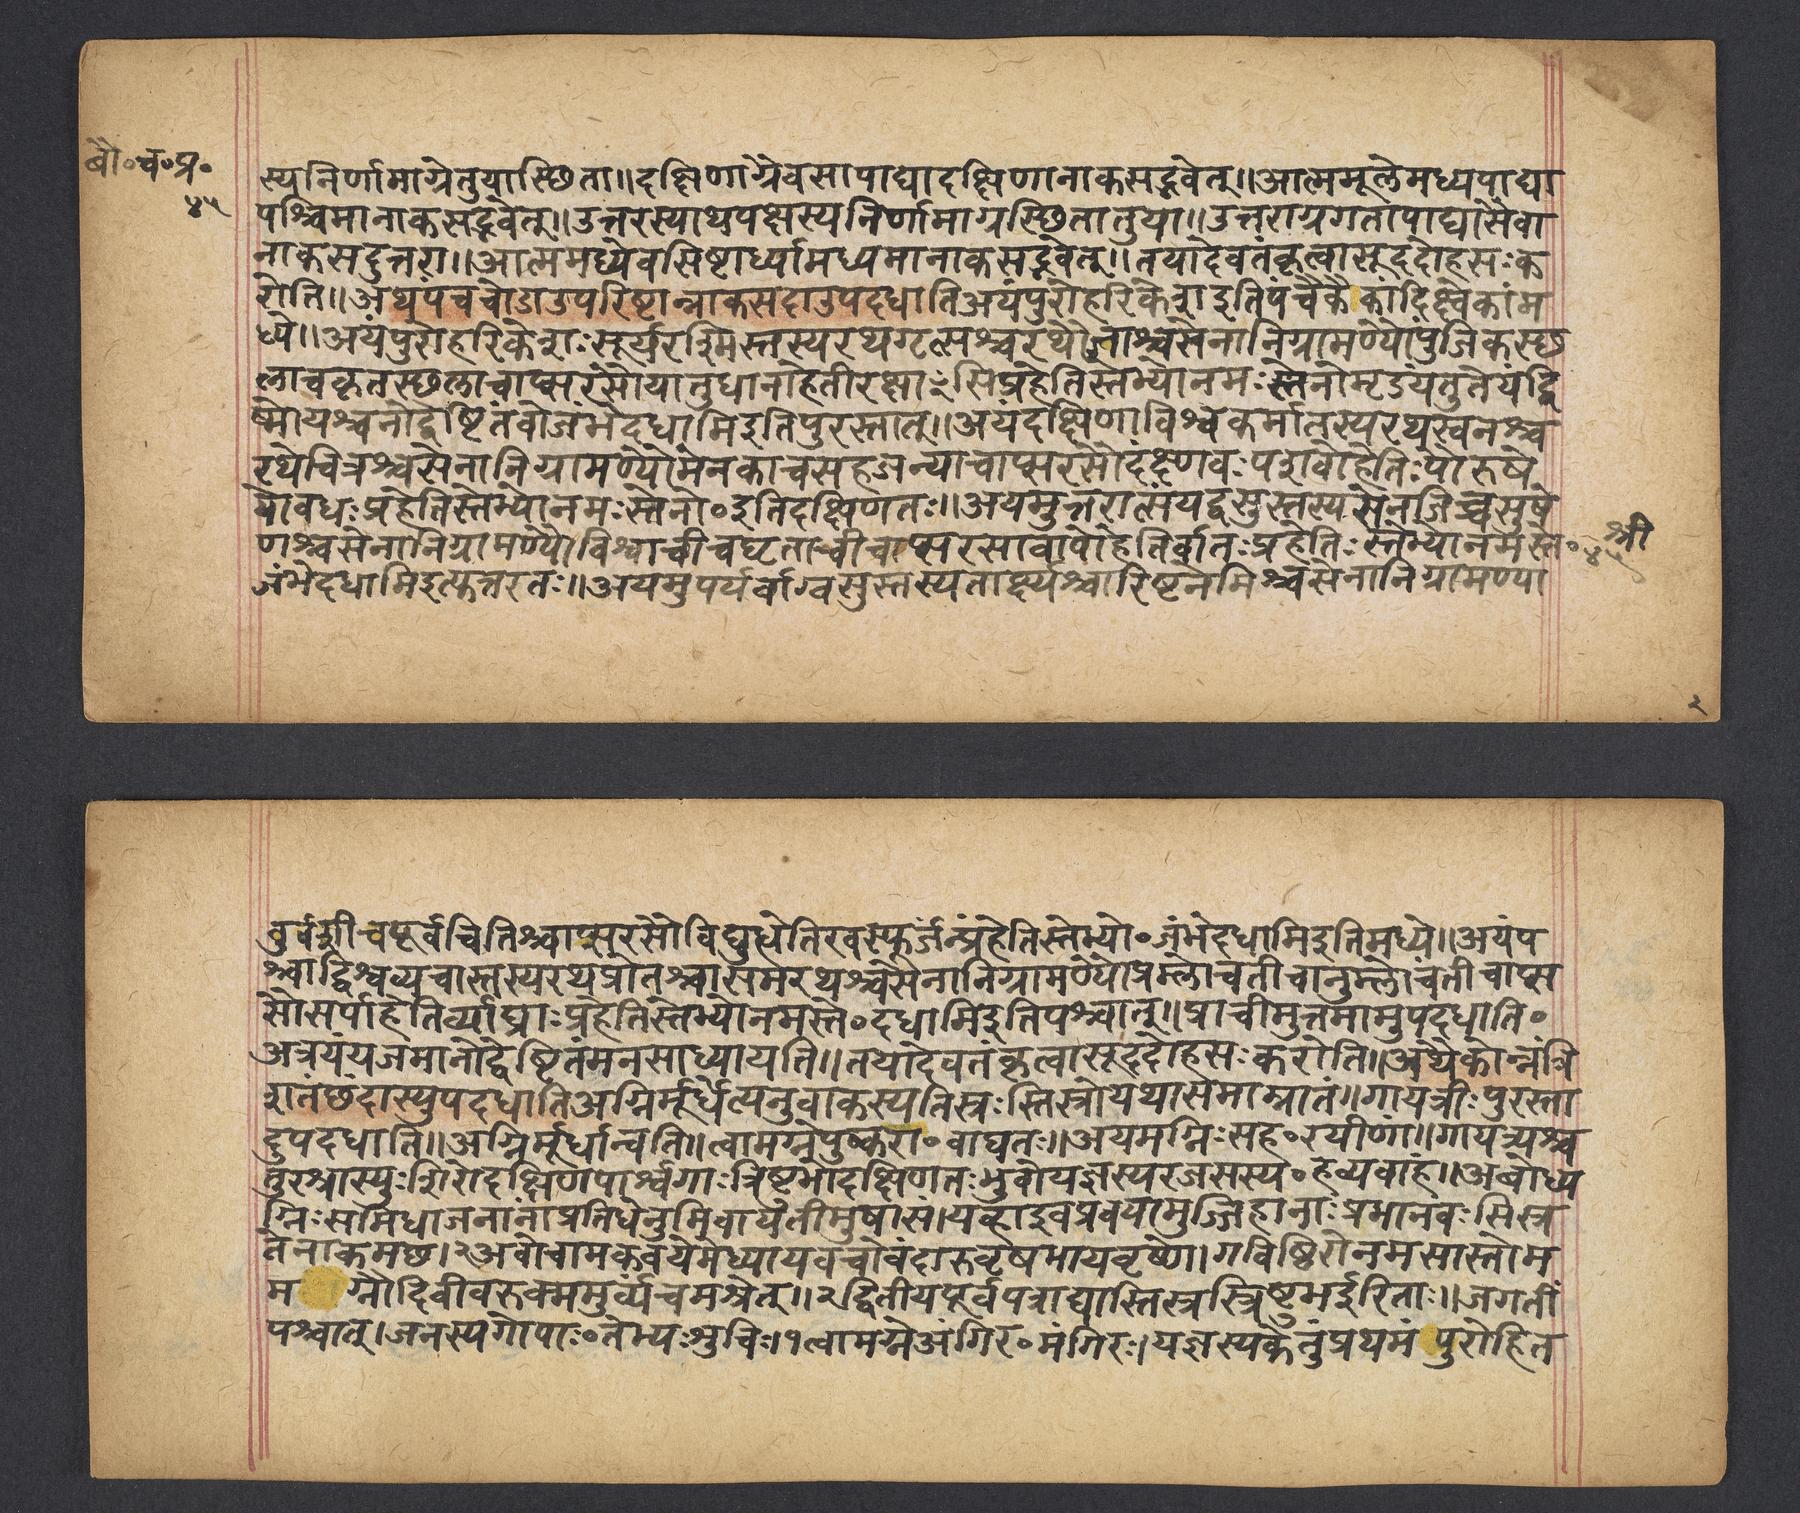 बौ॰च॰प्र॰
४५
स्यनिर्णामाग्रेतुयास्छिता॥दक्षिणाग्रेवसापाद्यादक्षिणानाकसद्भवेत्॥आत्ममूलेमध्यपाद्या
पश्चिमानाकसद्भवेत्॥उत्तरस्याथपक्षस्यनिर्णामाग्रस्छितातुया॥उत्तराग्रगतापाद्यासैवा
नाकसदुत्तरा॥आत्ममध्येवसिष्टार्ध्यामध्यमानाकसद्भवेत्॥तयादेवतंकृत्वासूददोहसःक
रोति॥अथपंचचोडाउपरिष्टान्नाकसदाउपदधातिअयंपुरोहरिकेशइतिपंचैकैकांदिक्ष्वेकांम
ध्ये॥अयंपुरोहरिकेशःसूर्यरश्मिस्तस्यरथगृत्सश्चरथौजाश्चसेनानिग्रामण्यौपुंजिकस्छ
लाचकृतस्छलाचाप्सरसौयातुधानाहेतीरक्षाꣳसिप्रहेतिस्तेभ्योनमःस्तेनोमृडयंतुतेयंद्वि
ष्मोयश्चनोद्वेष्टितंवोजंभेदधामिइतिपुरस्तात्॥अयंदक्षिणाविश्वकर्मातस्यरथस्वनश्च
रथेचित्रश्चसेनानिग्रामण्यौमेनकाचसहजन्याचाप्सरसौदंक्ष्णवःपशवोहेतिःपौरुषे
योवधःप्रहेतिस्तेभ्योनमःस्तेनो॰इतिदक्षिणतः॥अयमुत्तरात्संयद्वसुस्तस्यसेनजिच्चसुषे
णश्चसेनानिग्रामण्यौविश्वाचीचघृताचीचाप्सरसावापोहेतिर्वातःप्रहेतिःस्तेभ्योनमस्ते॰
श्री
४५
जंभेदधामिइत्युत्तरतः॥अयमुपर्यर्वाग्वसुस्तस्यतार्क्ष्यश्चारिष्टनेमिश्चसेनानिग्रामण्या
२
वुर्वशीचपूर्वचितिश्चाप्सरसौविद्युद्धेतिरवस्फूर्जन्प्रहेतिस्तेभ्यो॰जंभेदधामिइतिमध्ये॥अयंप
श्चाद्विश्वव्यचास्तस्यरथप्रोतश्चासमरथश्चसेनानिग्रामण्यौप्रम्लोचंतीचानुम्लोचंतीचाप्स
सौसर्पाहेतिर्व्याघ्राःप्रहेतिस्तेभ्योनमस्ते॰दधामिइतिपश्चात्॥प्राचीमुत्तमामुपदधाति॰
अत्रयंयजमानोद्वेष्टितंमनसाध्यायति॥तयादेवतंकृत्वासूददोहसःकरोति॥अथैकान्नत्रिꣳ
शतंछंदास्युपदधातिअग्निर्मूर्धेत्यनुवाकस्यतिस्रःस्तिस्रोयथासमाम्नातं॥गायत्रीःपुरस्ता
दुपदधाति॥अग्निर्मूर्धान्वति॥त्वामग्नेपुष्करा॰वाघतः॥अयमग्निःसह॰रयीणां॥गायत्र्यश्च
तुरश्रास्युःशिरोदक्षिणपार्श्वगाःत्रिष्टुभोदक्षिणतःभुवोयज्ञस्यरजसस्य॰हव्यवाहं॥अबोध्य
ग्निःसमिधाजनानांप्रतिधेनुमिवायतीमुषासं।यव्हाइवप्रवयामुज्जिहानाःप्रभानवःसिस्र
तेनाकमछ।२अवोचामकवयेमेध्यायवचोवंदारुवृषभायवृष्णे।गविष्ठिरोनमसास्तोम
म ग्नौदिवीवरुक्ममुर्व्यंचमश्रेत्॥२द्वितीयपूर्वपत्राद्यास्तिस्रस्त्रिष्टुभईरिताः॥जगतीं
पश्चात्।जनस्यगोपाः॰तेभ्यःशुचिः।१त्वामग्नेअंगिर॰मंगिरः।यज्ञस्यकेतुंप्रथमंपुरोहित